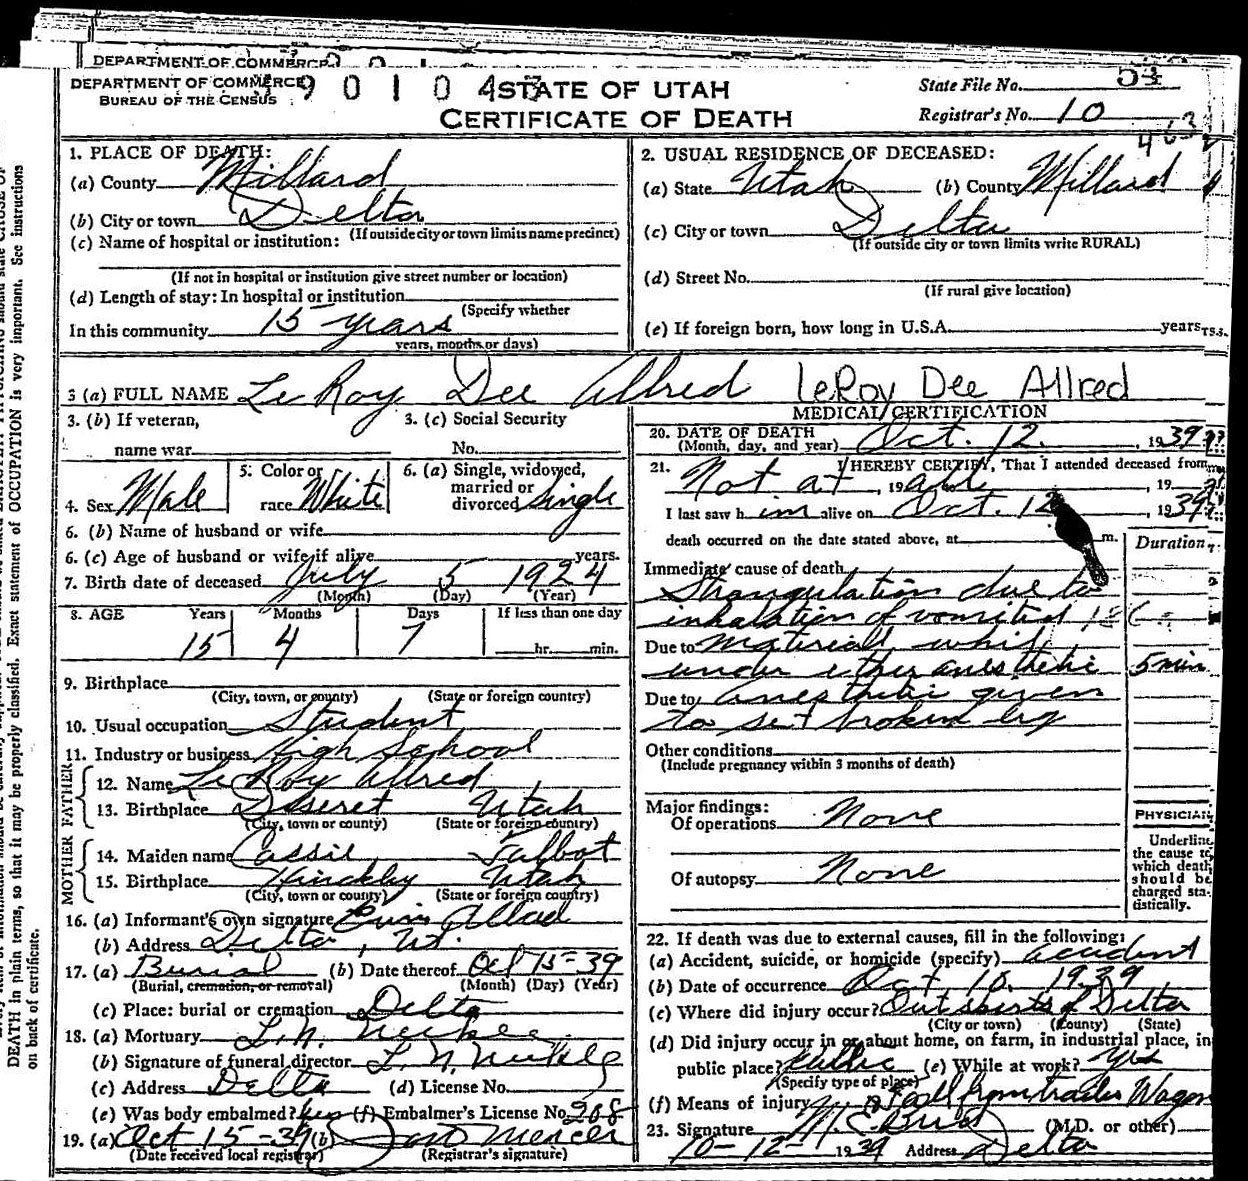 DEPARTMENT OF COMMERCE
DEPARTMENT OF COMMERCE
BUREAU OF THE CENSUS
STATE OF UTAH
CERTIFICATE OF DEATH
State File No. 54
Registrar's No. 10
463
1. PLACE OF DEATH:
(a) County Millard
(b) City or town Delta
(If outside city or town limits name precinct)
(c) Name of hospital or institution:
(If not in hospital or institution give street number or location)
(d) Length of stay: In hospital or institution
(Specify whether
In this community 15 years
years, months or days)
2. USUAL RESIDENCE OF DECEASED:
(a) State Utah (b) County Millard
(c) City or town Delta
(If outside city or town limits write RURAL)
(d) Street No.
(If rural give location)
(e) If foreign born, how long in U.S.A. years
3 (a) FULL NAME Le Roy Dee Allred LeRoy Dee Allred
3. (b) If veteran, name war
3. (c) Social Security No.
4. Sex Male
5. Color or race White
6. (a) Single, widowed, married or divorced Single
6. (b) Name of husband or wife
6. (c) Age of husband or wife if alive years.
7. Birth date of deceased July 5 1924
(Month) (Day) (Year)
8. AGE Years Months Days If less than one day
15 4 7 hr. min.
9. Birthplace
(City, town, or county) (State or foreign country)
10. Usual occupation Student
11. Industry or business High School
FATHER
12. Name Le Roy Allred
13. Birthplace Deseret Utah
(City, town or county) (State or foreign country)
MOTHER
14. Maiden name Cassie Talbot
15. Birthplace Hinckley Utah
(City, town or county) (State or foreign country)
16. (a) Informant's own signature Allred
(b) Address Delta, Ut.
17. (a) Burial (b) Date thereof Oct 15-39
(Burial, cremation, or removal) (Month) (Day) (Year)
(c) Place: burial or cremation Delta
18. (a) Mortuary L.N.
(b) Signature of funeral director L. N.
(c) Address Delta (d) License No.
(e) Was body embalmed? yes (f) Embalmer's License No. 208
19. (a) Oct 15-39 (b)
(Date received local registrar) (Registrar's signature)
MEDICAL CERTIFICATION
20. DATE OF DEATH Oct. 12. , 1939
(Month, day, and year)
21. I HEREBY CERTIFY, That I attended deceased from
Not at , 19 all , 19
I last saw him alive on Oct. 12 , 1939
death occurred on the date stated above, at m.
Duration
Immediate cause of death
Strangulation due to
inhalation of vomited
Due to material while
under ether anesthetic 5 min
Due to anesthetic given
to set broken leg
Other conditions
(Include pregnancy within 3 months of death)
Major findings:
Of operations None
Of autopsy None
PHYSICIAN
Underline
the cause to
which death
should be
charged sta-
tistically.
22. If death was due to external causes, fill in the following:
(a) Accident, suicide, or homicide (specify) accident
(b) Date of occurrence Oct 10. 1939
(c) Where did injury occur? Outskirts of Delta
(City or town) (County) (State)
(d) Did injury occur in or about home, on farm, in industrial place, in
public place? public (e) While at work? yes
(Specify type of place)
(f) Means of injury Fall from trailer Wagon
23. Signature (M.D. or other)
10-12- 1939 Address Delta
DEATH in plain terms, so that it may be properly classified. Exact statement of OCCUPATION is very important. See instructions
on back of certificate.